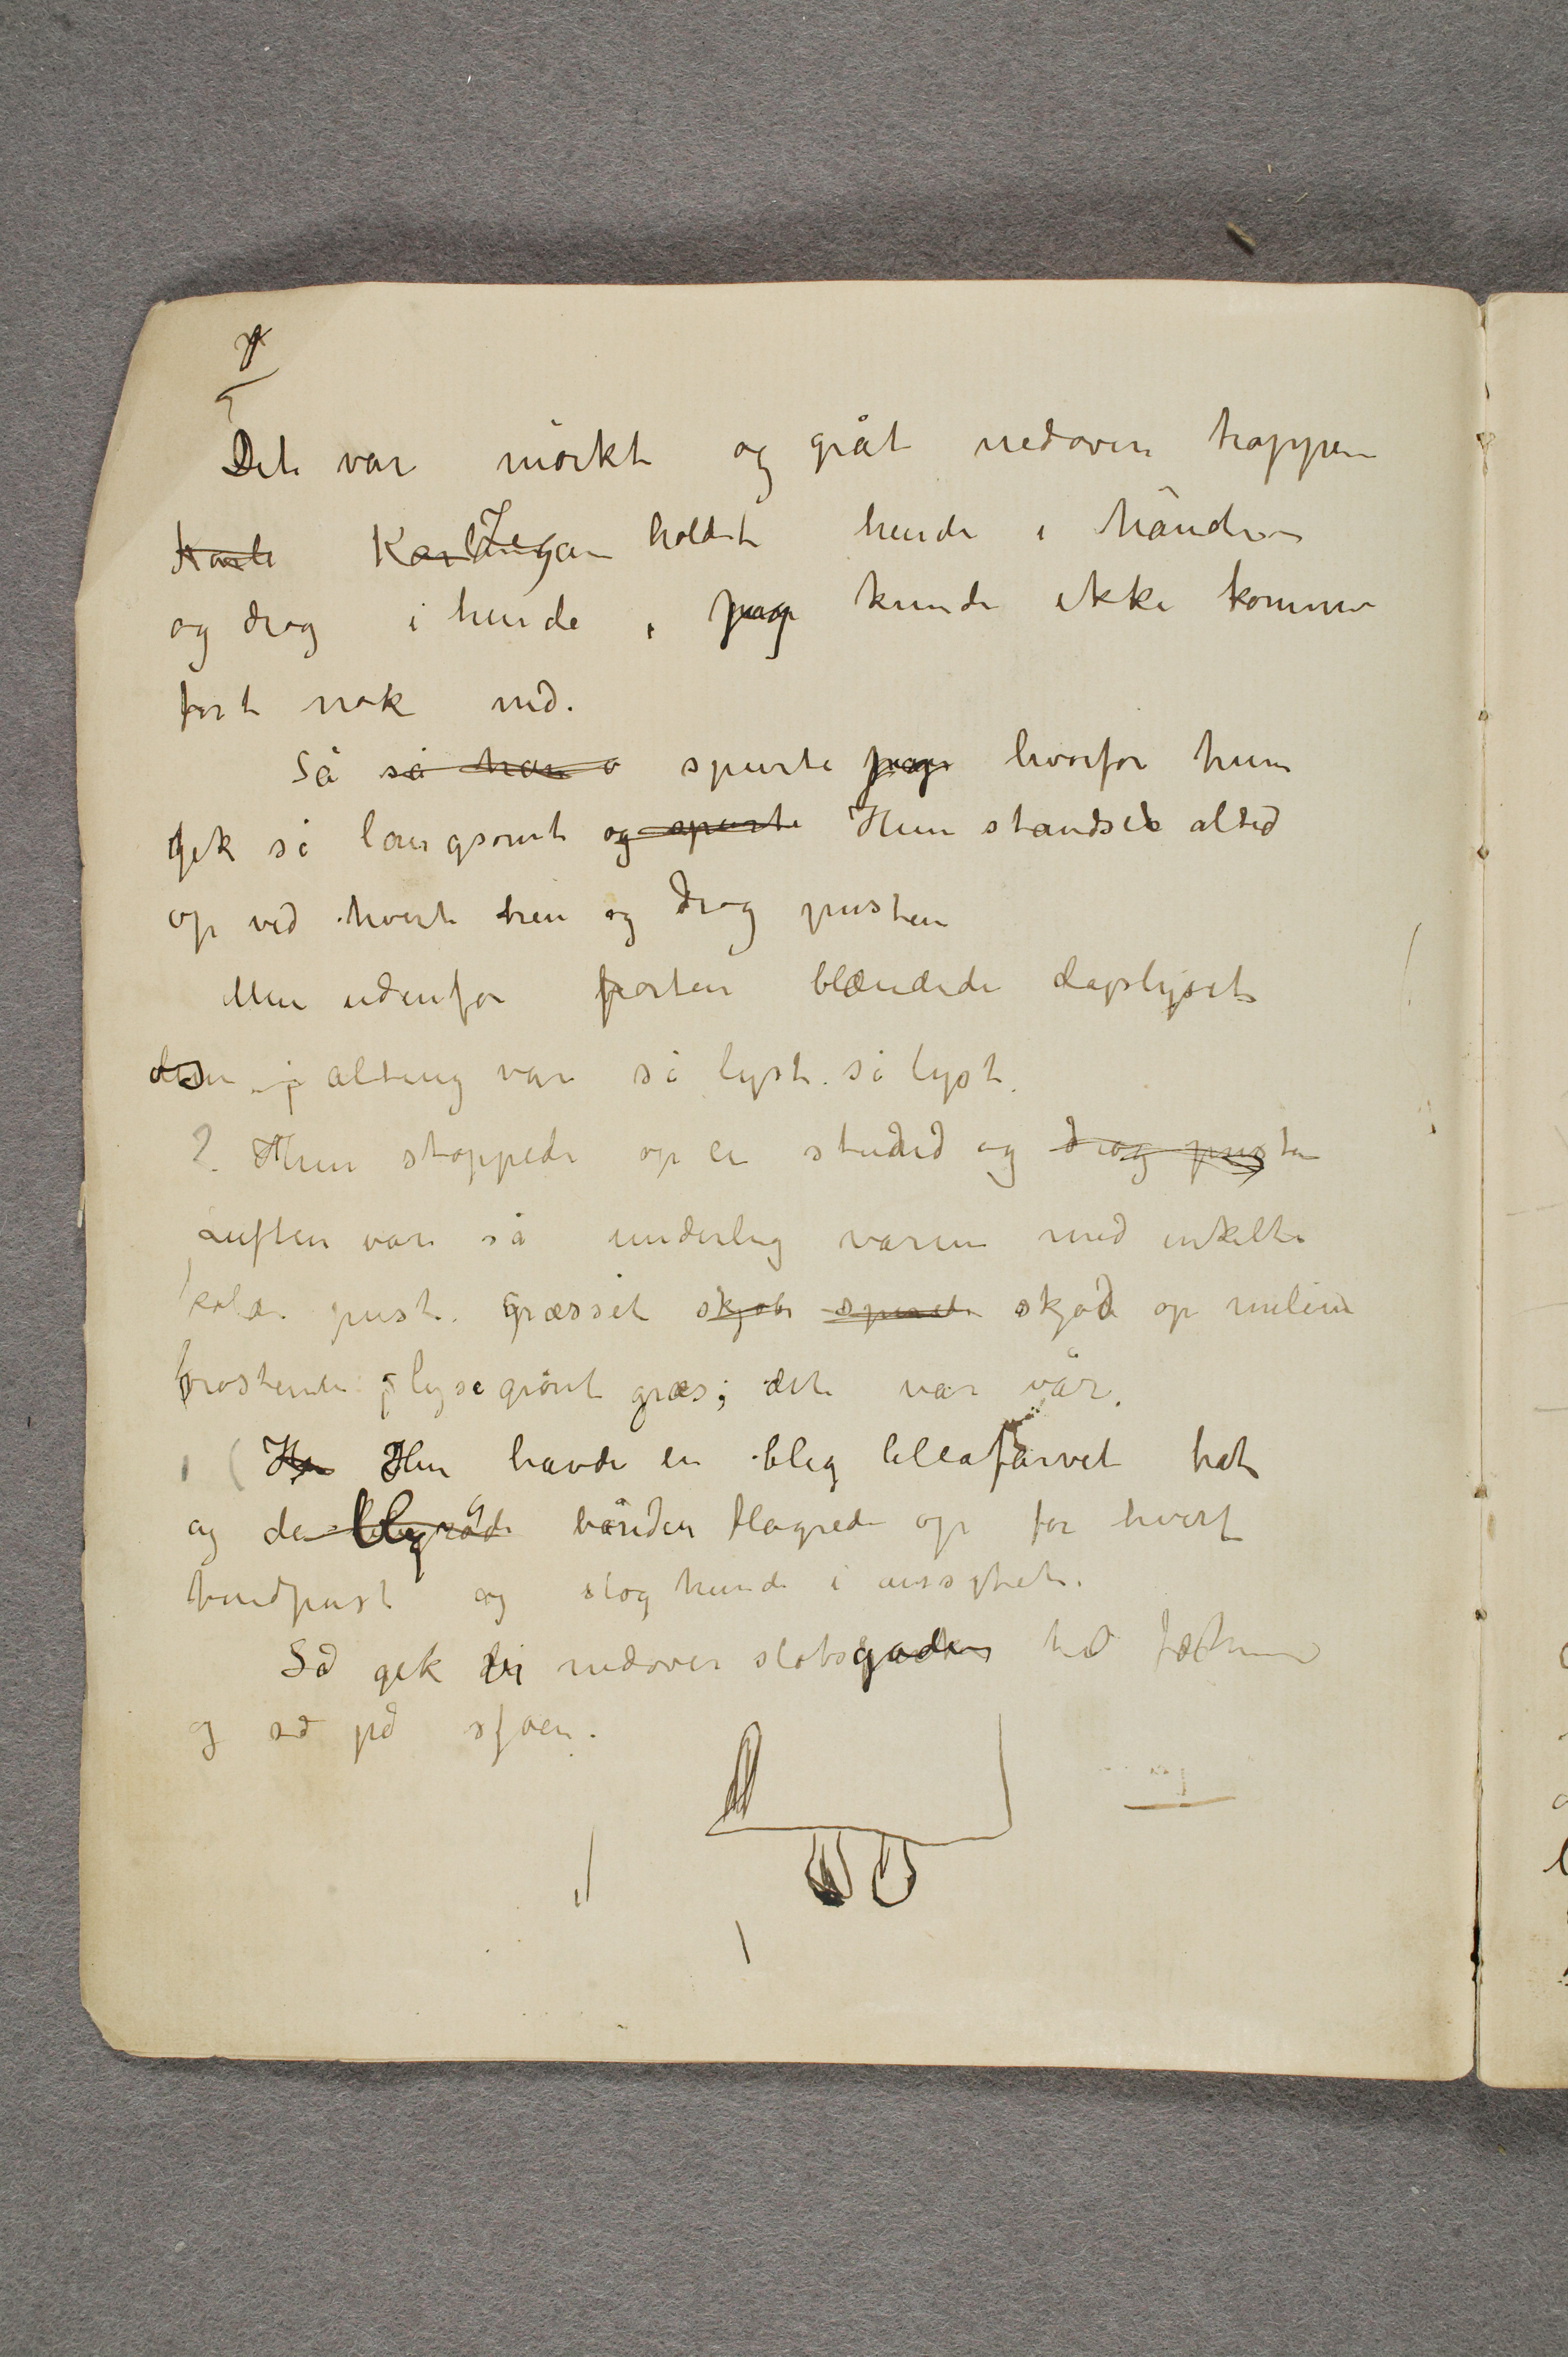 Det var mörkt og gråt nedover trappen
Karle Karl Jeg holdt hende i hånden
og drog i hende, jeg kunde ikke komme
fort nok ned.
Så så han o spurte jeg hvorfor hun
gik så langsomt og spurte Hun standset altid
op ved hvert trin og drog pusten
Men udenfor porten blændede dagslyset
alting var så lyst. så lyst.
2. Hun stoppede op en stund og drog pusten
Luften var så underlig varm med enkelte
kolde pust. græsset skjøt spirede skjød op mellem
brostenene lysegrönt græs; det var vår.
1 ( Ha Hun havde en bleg lillafarvet hat
og de blegröde bånden flagrede op for hvert
vindpust og slog hende i ansigtet.
Så gik vi nedover slotsgaden til fæstningen
og så på sjøen.